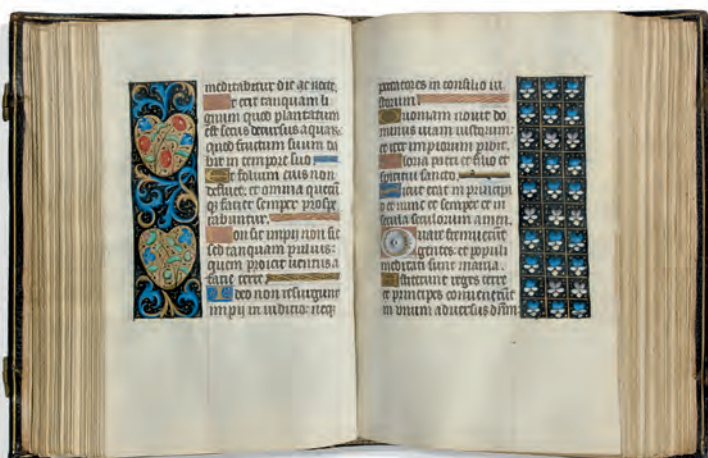 meditabitur die ac nocte.
Et erit tanquam li
gnum quod plantatum
est secus decursus aquarum
quod fructum suum da
bit in tempore suo
Et folium eius non
defluet: et omnia quecū
q faciet semper prospe
rabuntur.
Non sic impij non sic
sed tanquam pulvis:
quem proicit ventus a
facie terre
Ideo non resurgunt
impij in iudicio: neq
peccatores in consilio iu
storum
Quoniam novit do
minus viam iustorum:
et iter impiorum peribit.
Gloria patri et filio et
spiritui sancto.
Sicut erat in principi
o et nunc et semper et in
secula seculorum amen.
Quare fremuerūt
gentes: et populi
meditati sunt inania.
Astiterunt reges terre
et principes convenerūt
in unum adversus dn̄m